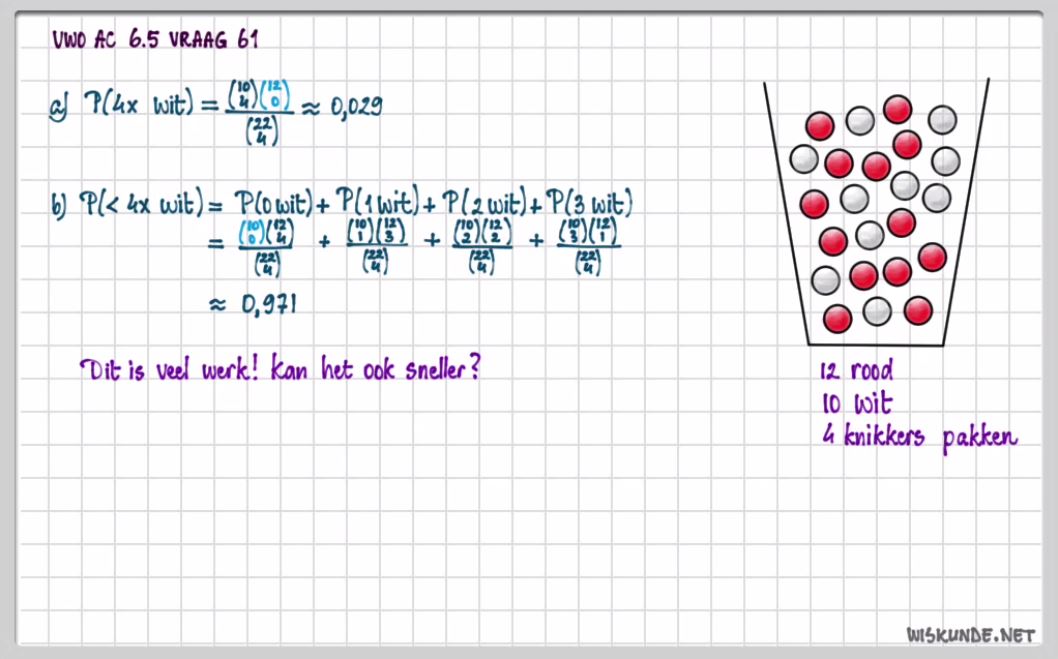 VWO AC 6.5 VRAAG 61
a) P(4x wit) = (10 4)(12 0) / (22 4) ≈ 0,029
b) P(< 4x wit) = P(0 wit) + P(1 wit) + P(2 wit) + P(3 wit)
= (10 0)(12 4) / (22 4) + (10 1)(12 3) / (22 4) + (10 2)(12 2) / (22 4) + (10 3)(12 1) / (22 4)
≈ 0,971
Dit is veel werk! Kan het ook sneller?
12 rood
10 wit
4 knikkers pakken
WISKUNDE.NET